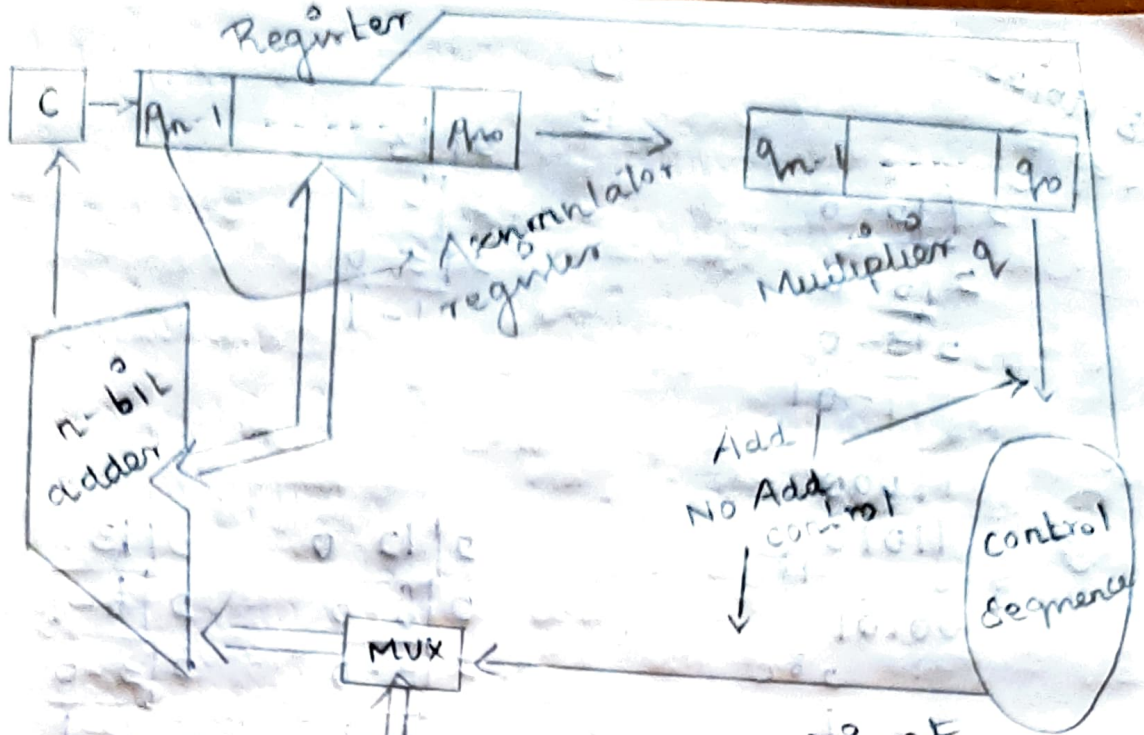 Register
C
qn-1 ------ q0
qn-1 ---- q0
Accumulator
register
Multiplier q
n-bit
adder
Add /
No Add
control
control
sequence
MUX